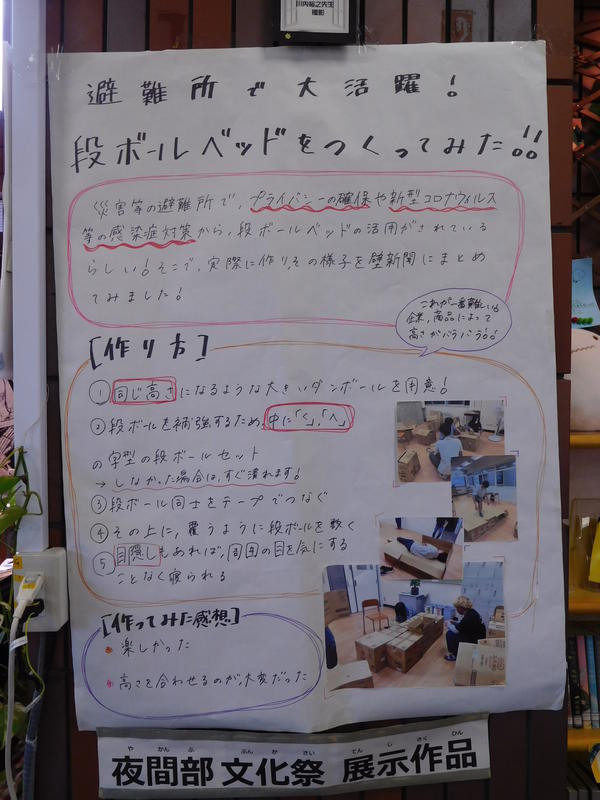 川内敏之先生
撮影
避難所で大活躍!
段ボールベッドをつくってみた!!
災害等の避難所で、プライバシーの確保や新型コロナウィルス
等の感染症対策から、段ボールベッドの活用がされている
らしい!そこで、実際に作り、その様子を壁新聞にまとめ
てみました!
これが一番難しい!
企業、商品によって
高さがバラバラ!!
[作り方]
① 同じ高さになるような大きいダンボールを用意!
② 段ボールを補強するため、中に「く」,「へ」
の字型の段ボールセット
→しなかった場合は、すぐ潰れます!
③ 段ボール同士をテープでつなぐ
④ その上に、覆うように段ボールを敷く
⑤ 目隠しもあれば、周囲の目を気にする
ことなく寝られる
[作ってみた感想]
楽しかった
高さを合わせるのが、大変だった
や かん ぶ ぶん か さい てん じ さく ひん
夜間部 文化祭 展示作品